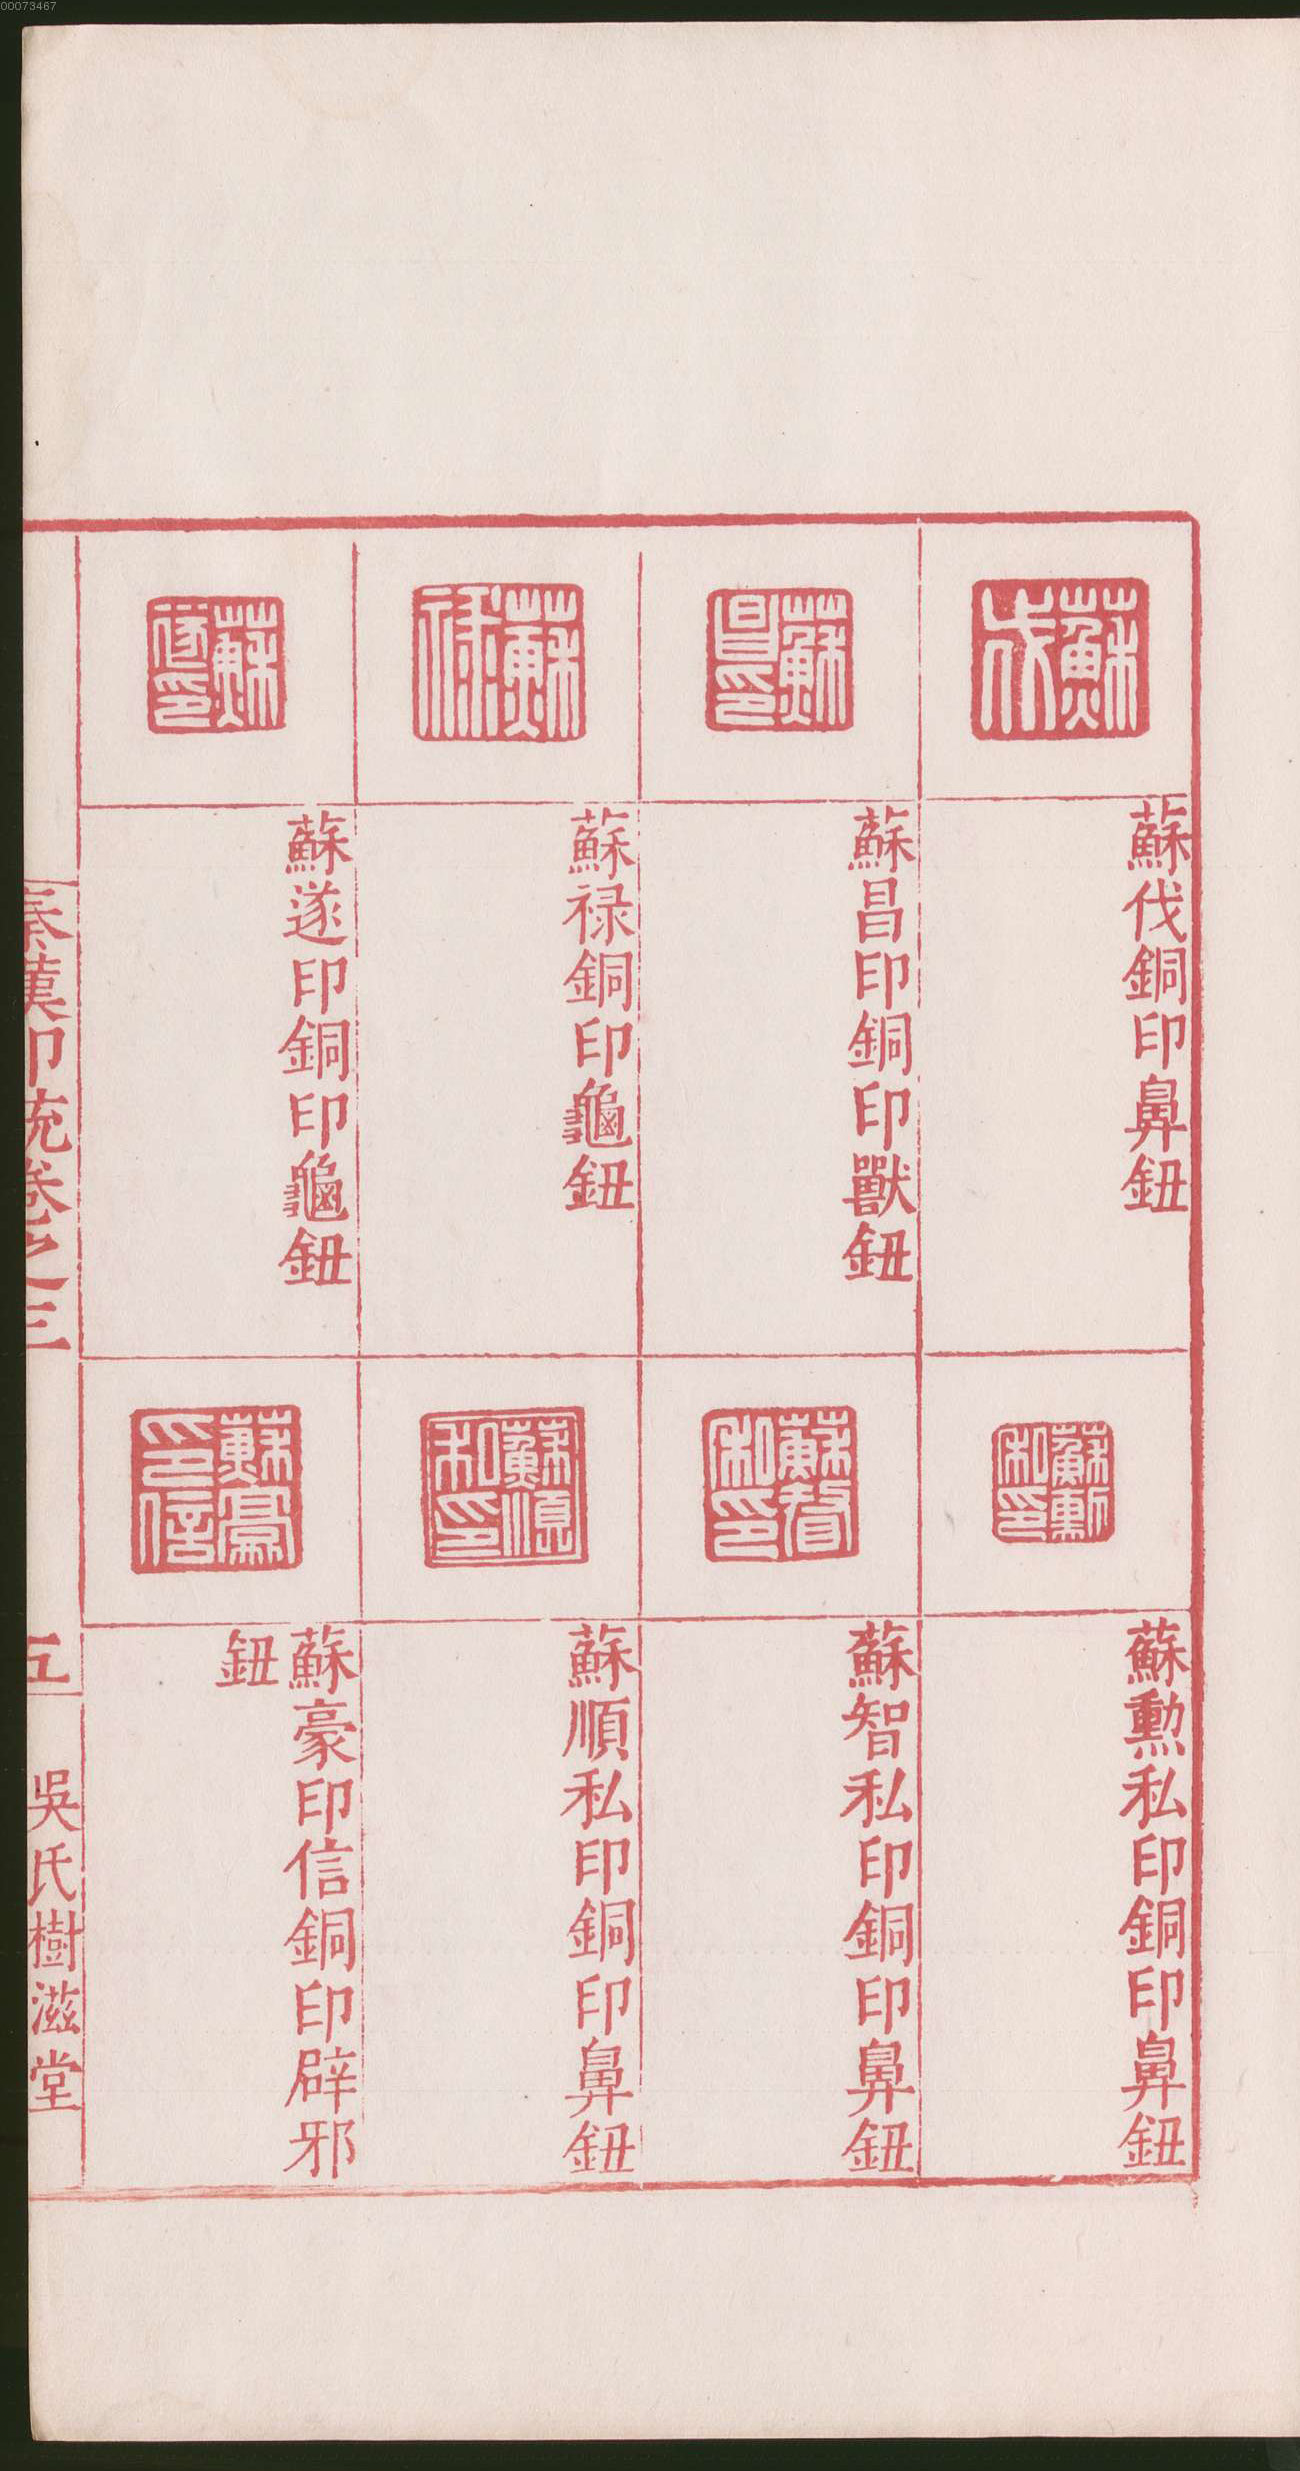 00073467
蘇伐
蘇伐銅印鼻鈕
蘇勲私印
蘇勲私印銅印鼻鈕
蘇昌印
蘇昌印銅印獸鈕
蘇智私印
蘇智私印銅印鼻鈕
蘇禄
蘇禄銅印龜鈕
蘇順私印
蘇順私印銅印鼻鈕
蘇遂印
蘇遂印銅印龜鈕
蘇豪印信
蘇豪印信銅印辟邪
鈕
秦漢印統卷之三
五
吳氏樹滋堂